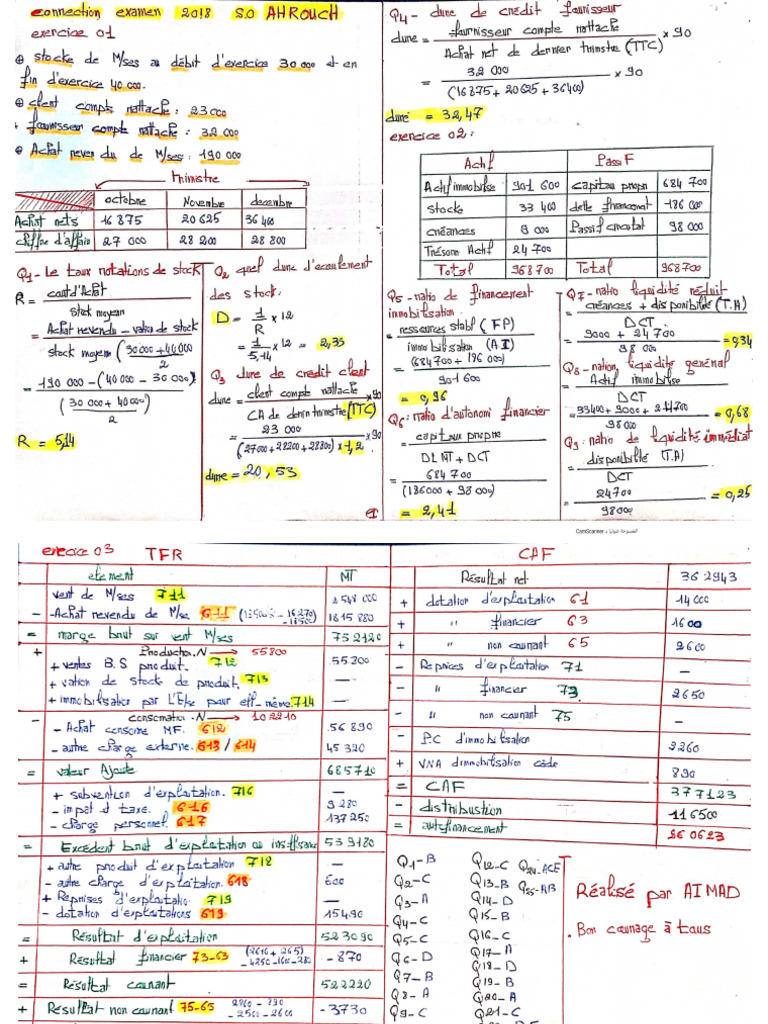 connection examen 2018 S.O AHROUCH
exercice 01
⊕ stocke de M/ses au débit d'exercice 30 000 et en
fin d'exercice 40 000.
⊕ client compte rattaché : 23 000
+ fournisseur compte rattaché : 32 000
⊕ Achat revendu de M/ses : 190 000
trimistre
octobre Novembre decembre
Achat nets 16 875 20 625 36 400
chiffre d'affair 27 000 28 200 28 800
Q1 - Le taux rotations de stock
R = cout d'Achat
stock moyean
= Achat revendu - vation de stock
stock moyem (30 000 + 40 000
2)
= 190 000 - (40 000 - 30 000)
(30 000 + 40 000)
2
R = 5,14
Q2 quel dure d'ecoulement
des stock:
D = 1/R × 12
= 1/5,14 × 12 = 2,33
Q3 dure de credit client
dure = client compte rattaché × 90
CA de dernier trimestre (TTC)
= 23 000 × 90
(27000 + 28200 + 28800) × 1,2
dure = 20,53
Q4 - dure de credit fournisseur
dure = fournisseur compte rattache × 90
Achat net de dernier trimstre (TTC)
= 32 000 × 90
(16875 + 20625 + 36400)
duré = 32,47
exercice 02 :
Actif Passif
Actif immobilise 901 600 capitau propr 684 700
stock 33 400 dette financement 186 000
créances 9 000 Passif circulat 98 000
Trésore Actif 24 700
Total 968 700 Total 968700
Q5 - ratio de financement
immobilisation :
= ressources stabl (FP)
immobilisation (AI)
= (684 700 + 186 000)
901 600
= 0,96
Q6 : ratio d'autonomi financier
= capitaux propre
DLMT + DCT
= 684 700
(186000 + 98 000)
= 2,41
Q7 - ratio liquidité réduit
= créances + disponibilité (T.A)
DCT
= 9000 + 24 700 = 0,34
98 000
Q8 - ration liquidity général
= Actif immobilise
DCT
= 33400 + 9000 + 24700 = 0,68
98000
Q9 : ratio de liquidité immédiat
= disponibilité (T.A)
DCT
= 24700 = 0,25
98000
CamScanner
exercice 03 TFR
element MT
vent de M/ses 711 2 548 000
- Achat revendu de M/se 611 1 615 880
= marge brut sur vent M/ses 752120
+ Production.N → 55800
+ ventes B.S produit. 712 55 200
+ vation de stock de produit. 713 —
+ immobilisation par l'E/se pour elle-même. 714 —
- consomation.N → 10 22 10
- Achat consome MF. 612 56 890
- autre charge externe. 613 / 614 45 320
= valeur Ajoute 685710
+ subvention d'exploitation 716 —
- impôt d taxe. 616 9 280
- charge personel. 617 137 250
= Excedent brut d'exploitation ou insiffisanc 539180
+ autre produit d'exploitation 718 —
- autre charge d'exploitation. 618 600
+ Reprises d'exploitatio 719 —
- dotation d'exploitations 619 15490
= Résultat d'exploitation 523090
+ Résultat financier 73-63 (2610 + 265) - 870
= Resultat courant 522220
+ Résultat non courant 75-65 -3730
- 2500 - 2600
CAF
Résultat net 362943
+ dotation d'exploitation 61 14 000
+ " financier 63 1600
+ " non courant 65 2600
- Reprises d'exploitation 71 —
- " financier 73 2650
- " non courant 75 —
- P.C d'immobilisation 2260
+ VNA d'immobilisation céde 890
= CAF 377123
- distribustion 116500
= autofinancement 260623
Q1 - B
Q2 - C
Q3 - A
Q4 - C
Q5 - C
Q6 - D
Q7 - B
Q8 - A
Q9 - C
Q12 - C
Q13 - B
Q14 - D
Q15 - B
Q16 - C
Q17 - A
Q18 - D
Q19 - B
Q20 - A
Q21 - C
Q24 - ACE
Q25 - AB
Réalisé par AIMAD
. Bon courage à tous